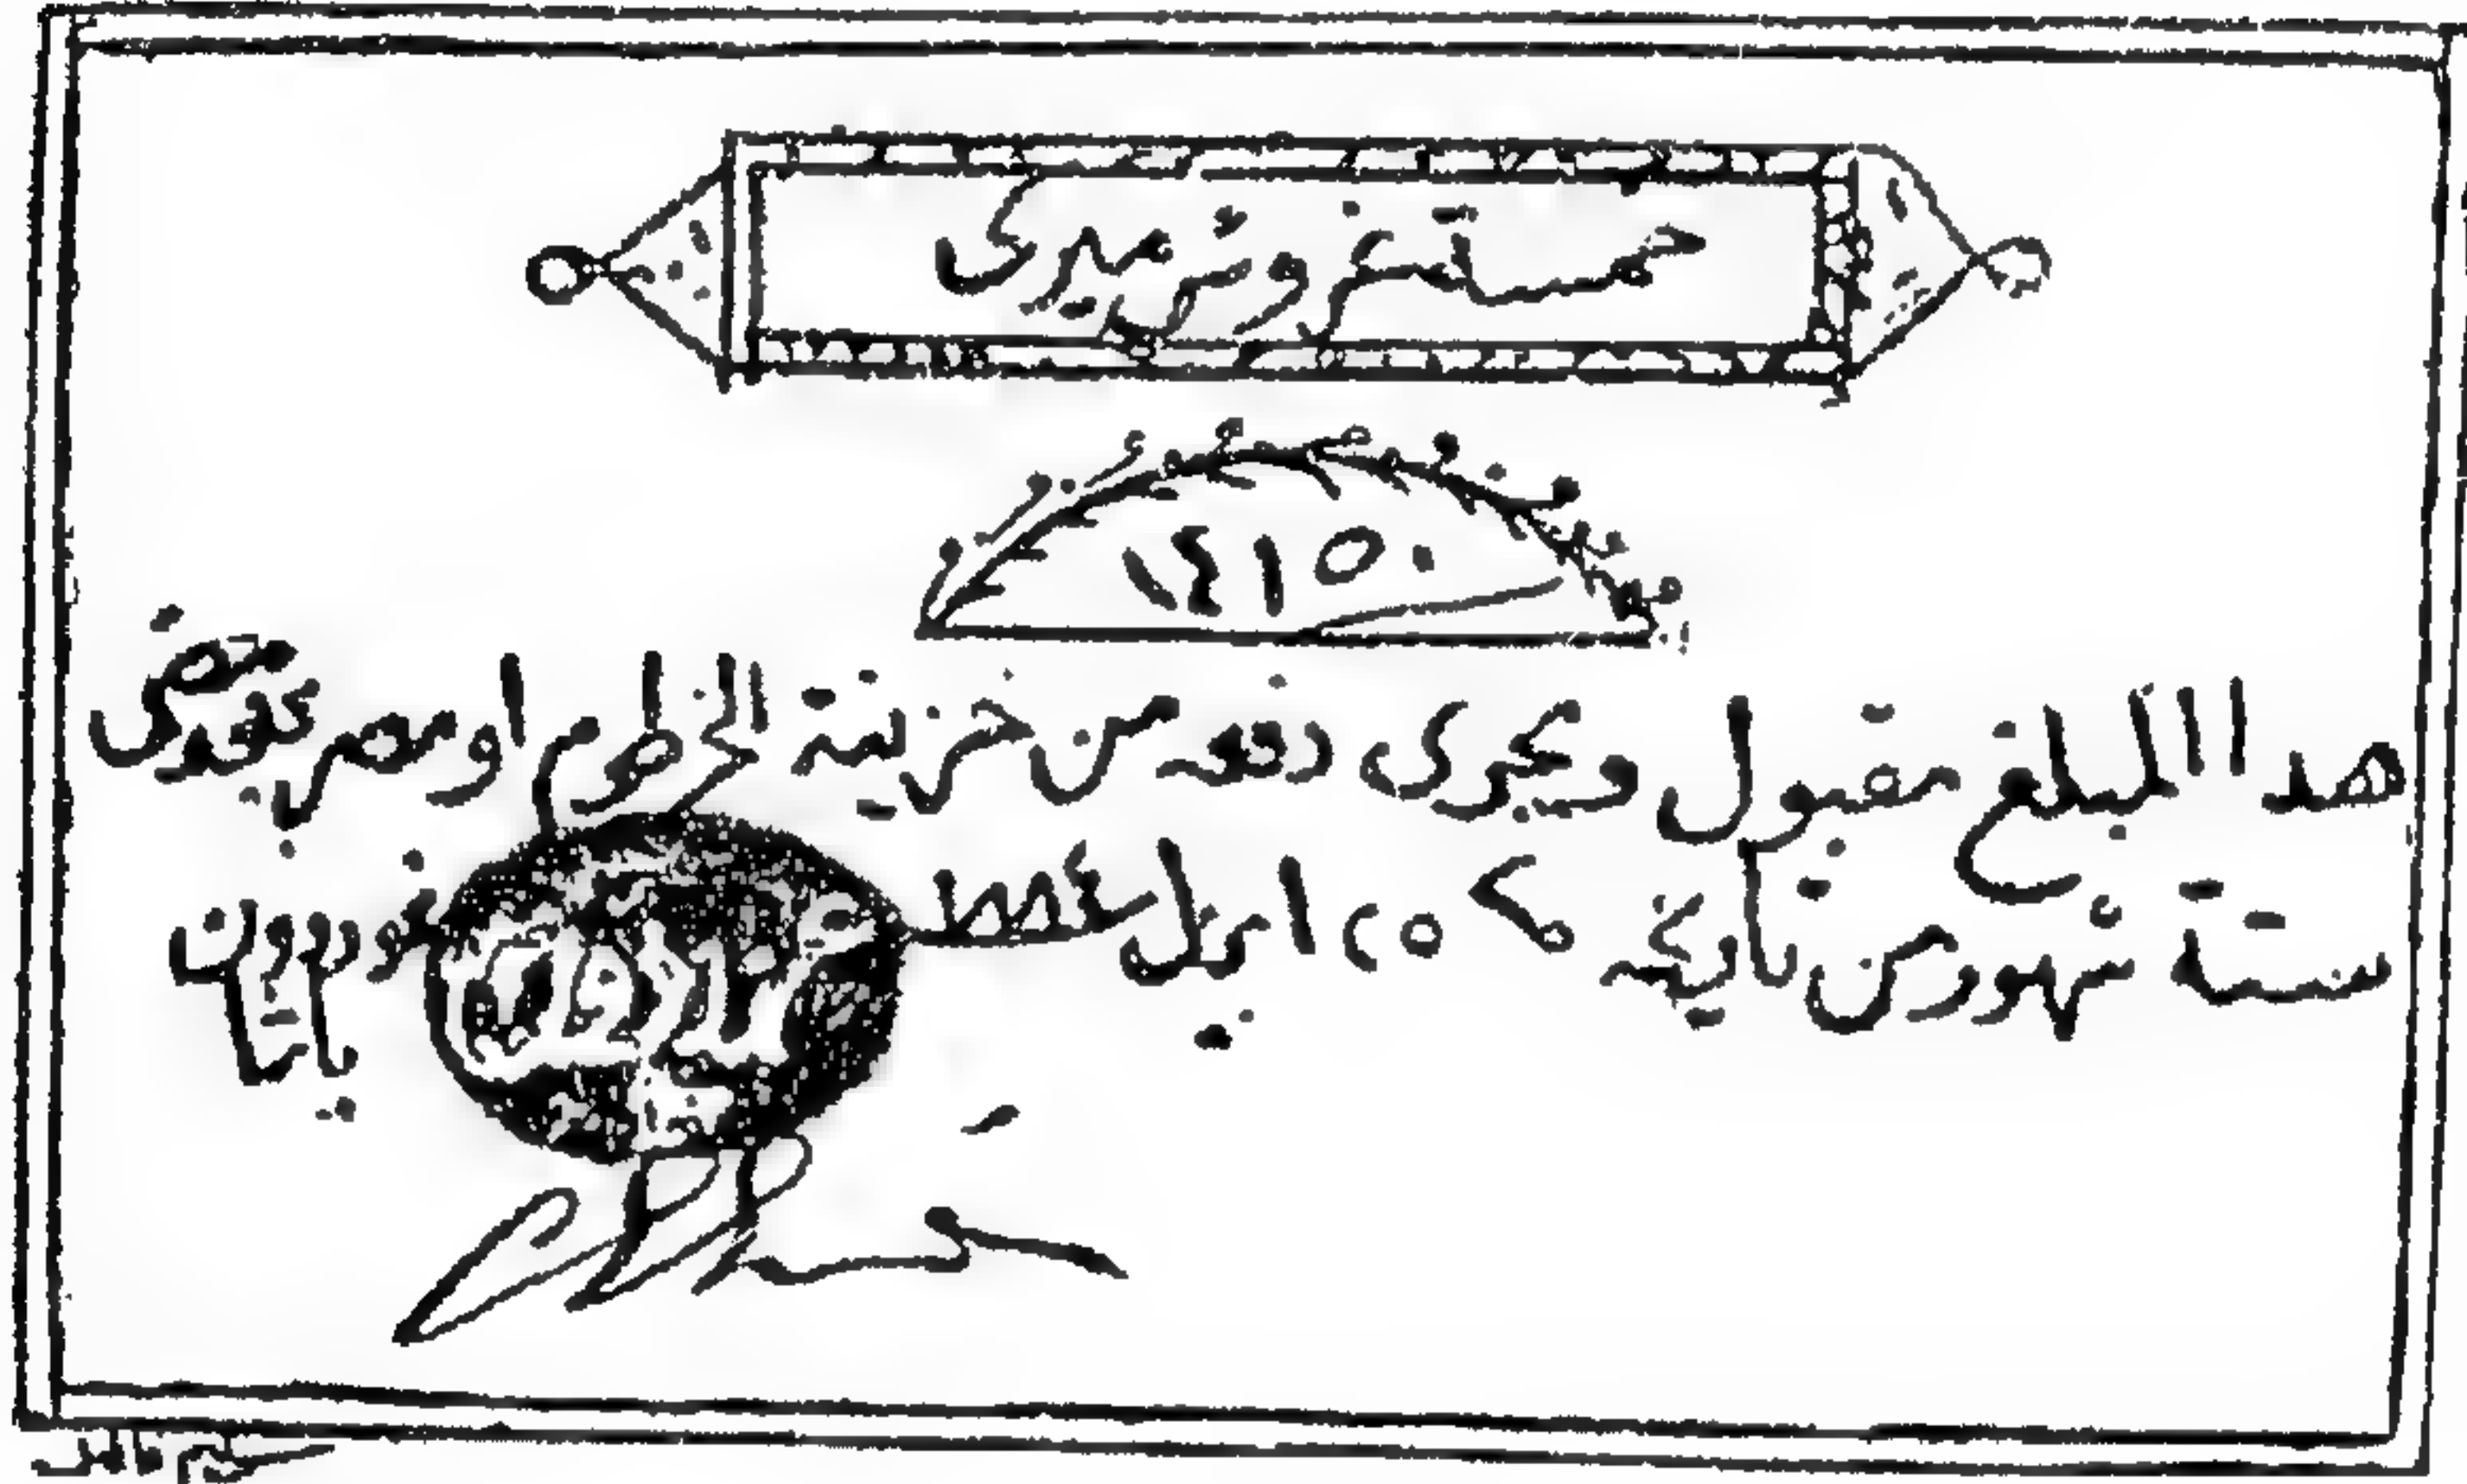 خمسة غروش ميرى
١٤١٥٠
هذا المبلغ مقبول ويجرى دفعه من خزينة الخرطوم او مصر بعد مضى
ستة شهور من تاريخه ٢٥ ابريل غوردون باشا